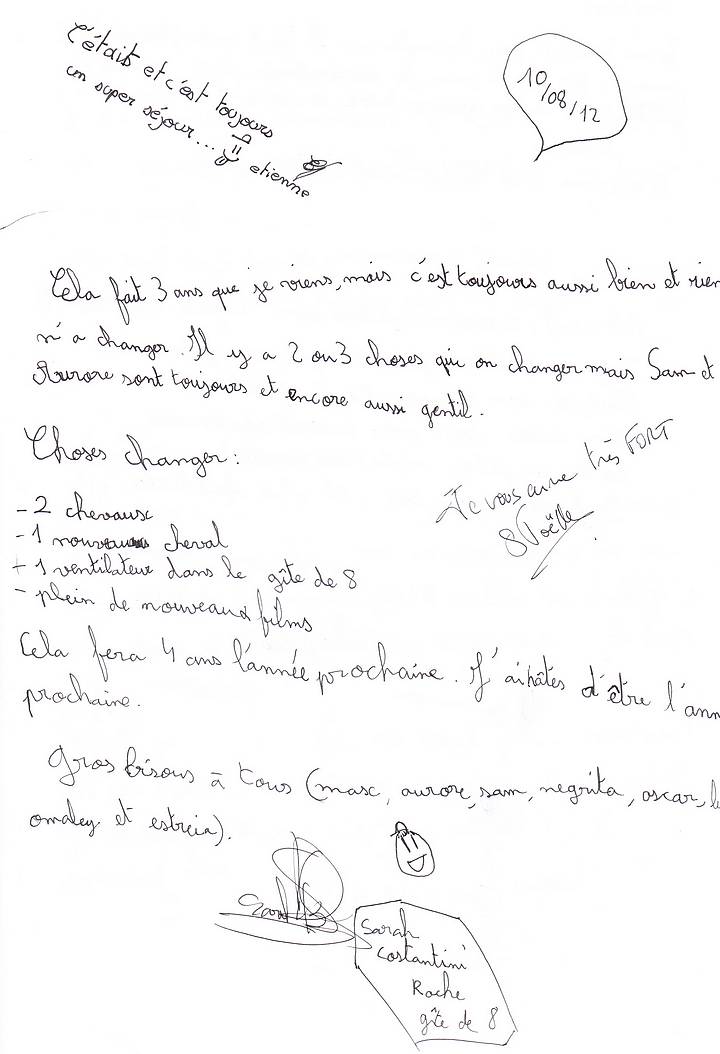 C'étais et c'est toujours
un super séjour...
etienne
10/08/12
Cela fait 3 ans que je viens, mais c'est toujours aussi bien et rien
n'a changer. Il y a 2 ou 3 choses qui on changer mais Sam et
Aurore sont toujours et encore aussi gentil.
Choses changer:
- 2 chevaux
- 1 nouveau cheval
+ 1 ventilateur dans le gîte de 8
- plein de nouveaux films
Je vous aime très FORT
Cela fera 4 ans l'année prochaine. J'ai hâtes d'être l'ann
prochaine.
Gros bisous à tous (masc, aurore, sam, negrita, oscar,
omaley et estreia).
Sarah
Costantini
Roche
gîte de 8